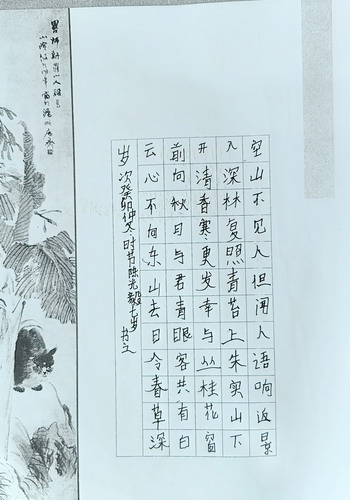 空山不见人但闻人语响返景
入深林复照青苔上朱实山下
开清香寒更发幸与丛桂花窗
前向秋月与君青眼客共有白
云心不向东山去日令春草深
岁次癸卯仲冬时节陈光毅七岁书之
畧师新罗山人